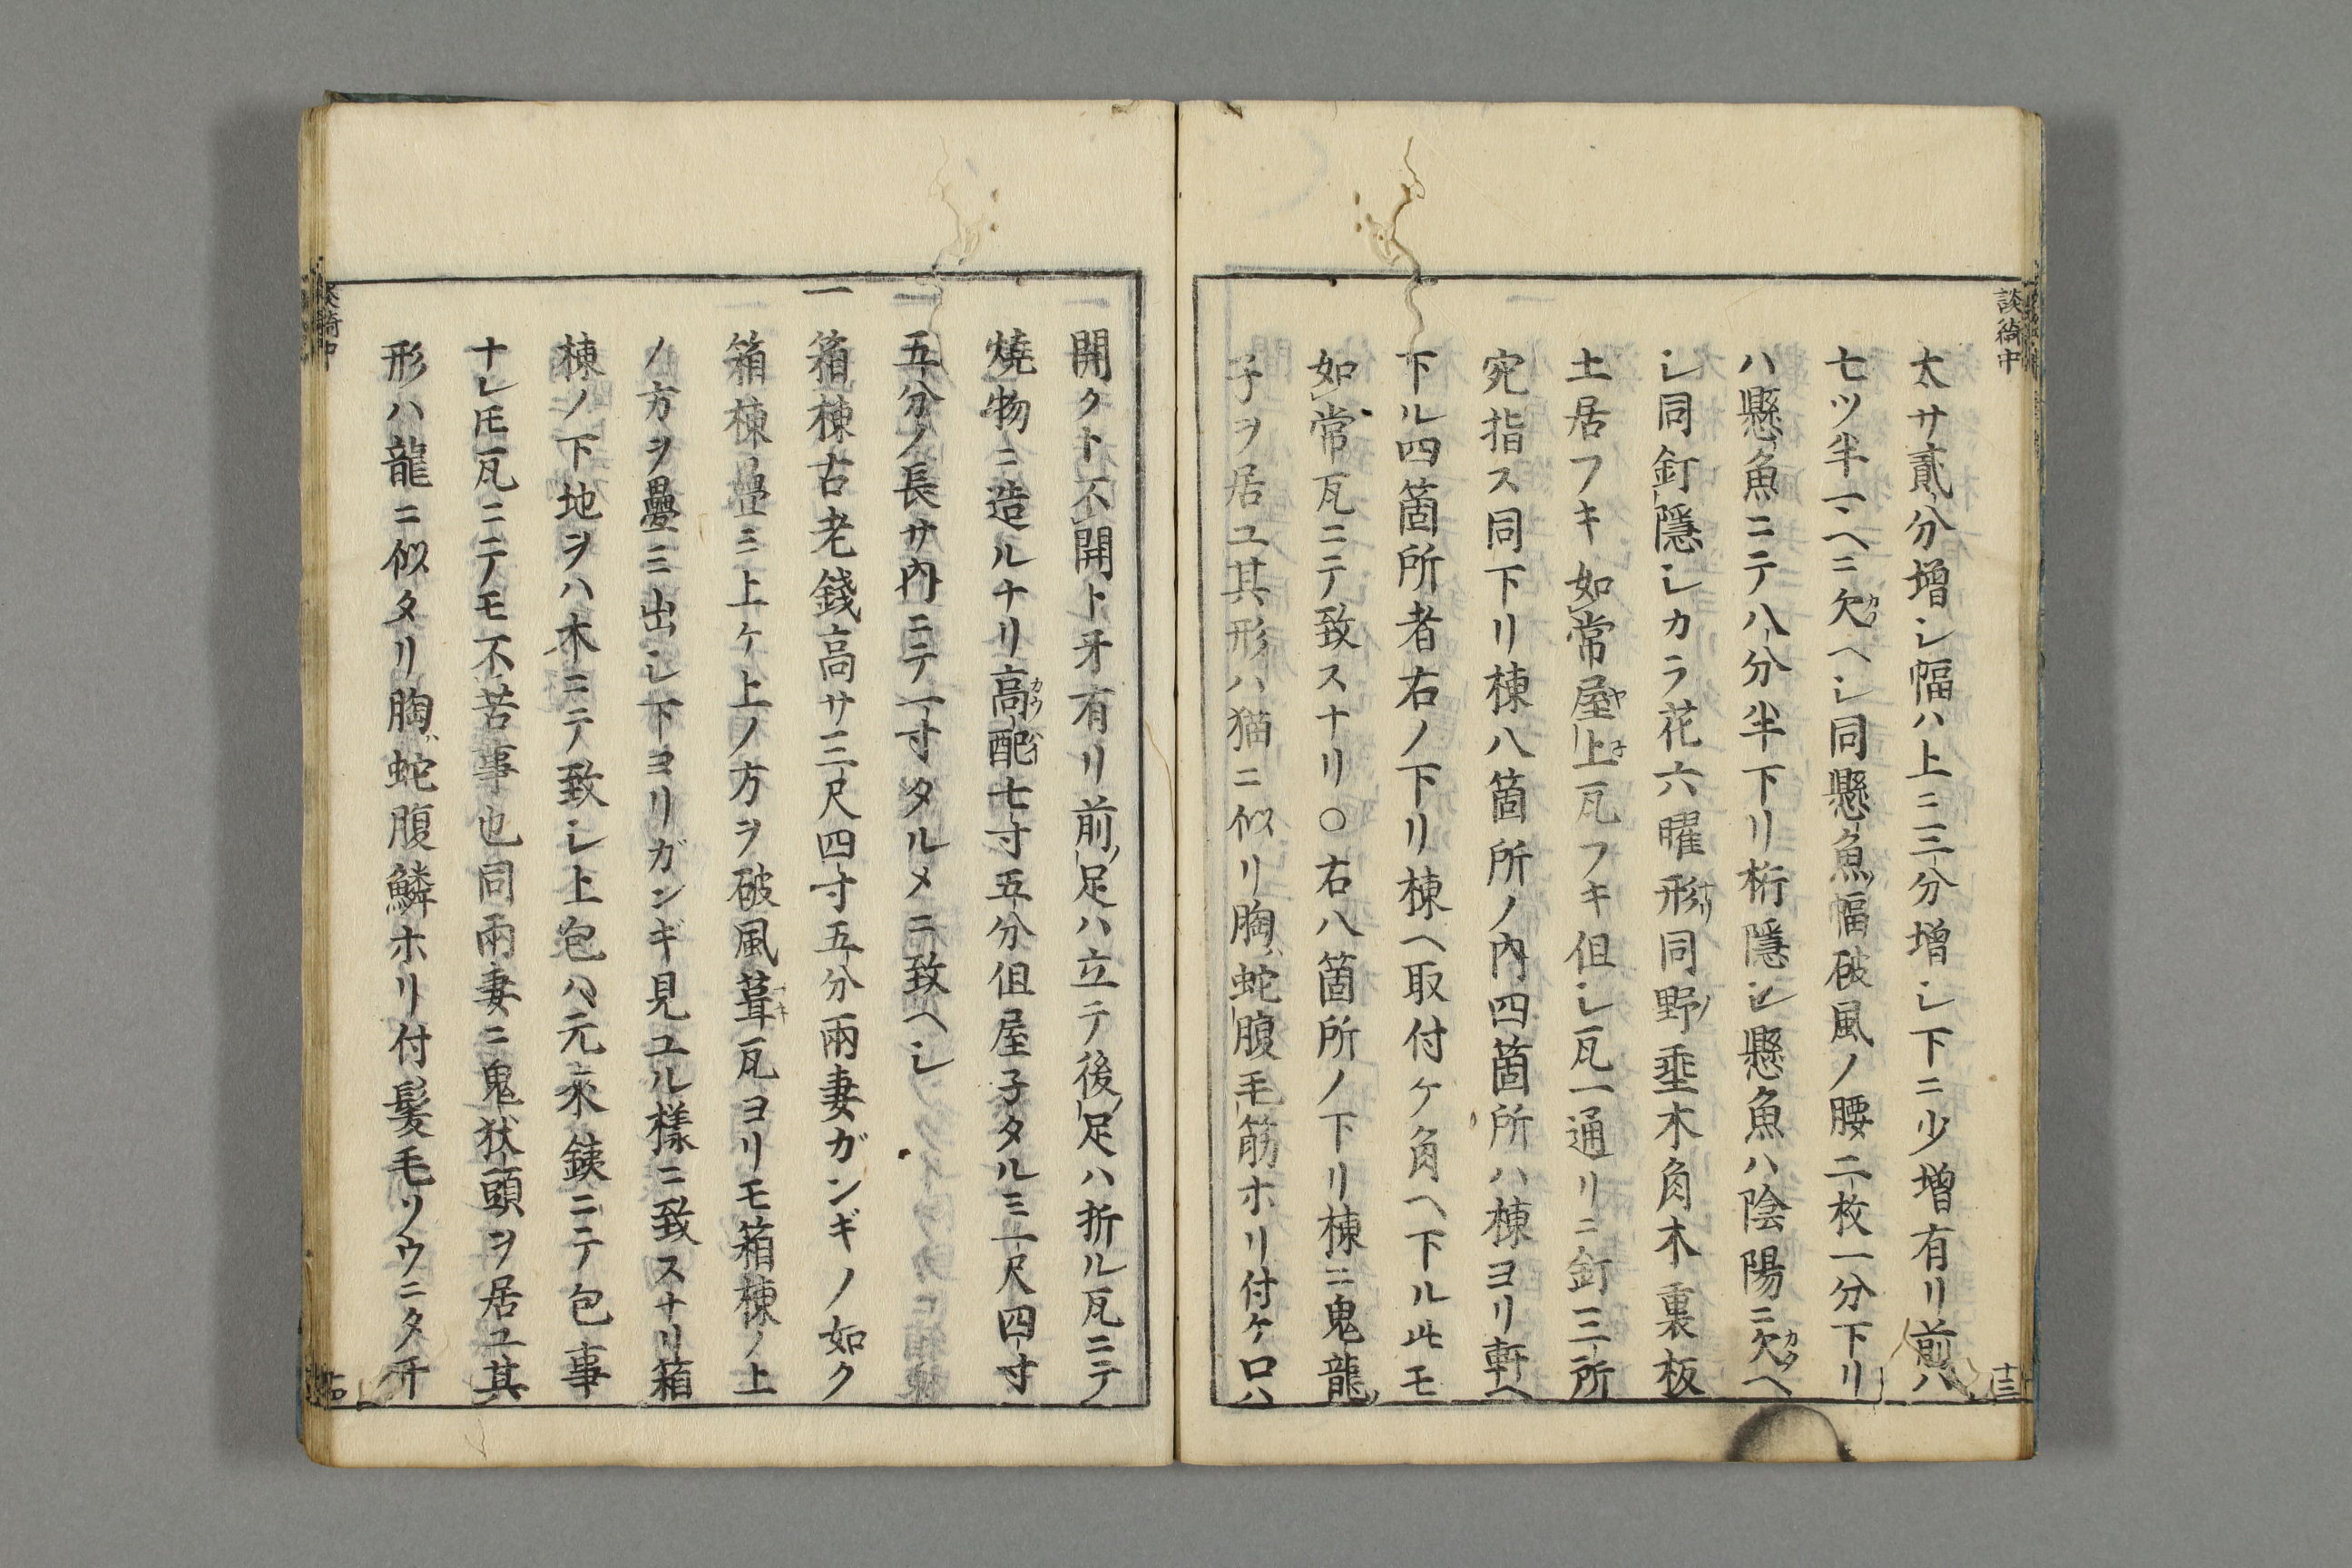 談綺中
太サ貳分増シ幅ハ上ニ三分増シ下ニ少増有リ前ハ
七ツ半一ヽヘニ欠ヘシ同懸魚幅破風ノ腰二枚一分下リ
ハ懸魚ニテ八分半下リ桁隱シ懸魚ハ陰陽ニ欠ヘ
シ同釘隱シカラ花六曜形同野垂木角木裏板
土居フキ如常屋上瓦フキ但シ瓦一通リニ釘三所
宛指ス同下リ棟八箇所ノ內四箇所ハ棟ヨリ軒ヘ
下ル四箇所者右ノ下リ棟ヘ取付ケ角ヘ下ル此モ
如常瓦ニテ致スナリ○右八箇所ノ下リ棟ニ鬼龍
子ヲ居ユ其形ハ猫ニ似リ胸蛇腹毛筋ホリ付ケ口ハ
十三
開クト不開ト牙有リ前足ハ立テ後足ハ折ル瓦ニテ
燒物ニ造ルナリ高配七寸五分但屋子タルミ一尺四寸
五分ノ長サ內ニテ一寸タルメニ致ヘシ
一箱棟古老錢高サ三尺四寸五分兩妻ガンギノ如ク
箱棟ノ疊ミ上ケ上ノ方ヲ破風葺瓦ヨリモ箱棟ノ上
ノ方ヲ疊ミ出シ下ヨリガンギ見ユル樣ニ致スナリ箱
棟ノ下地ヲハ木ニテ致シ上包ハ元來銕ニテ包事
ナレ𪜈瓦ニテモ不苦事也同兩妻ニ鬼狀頭ヲ居ユ其
形ハ龍ニ似タリ胸蛇腹鱗ホリ付髮毛リウニタ牙